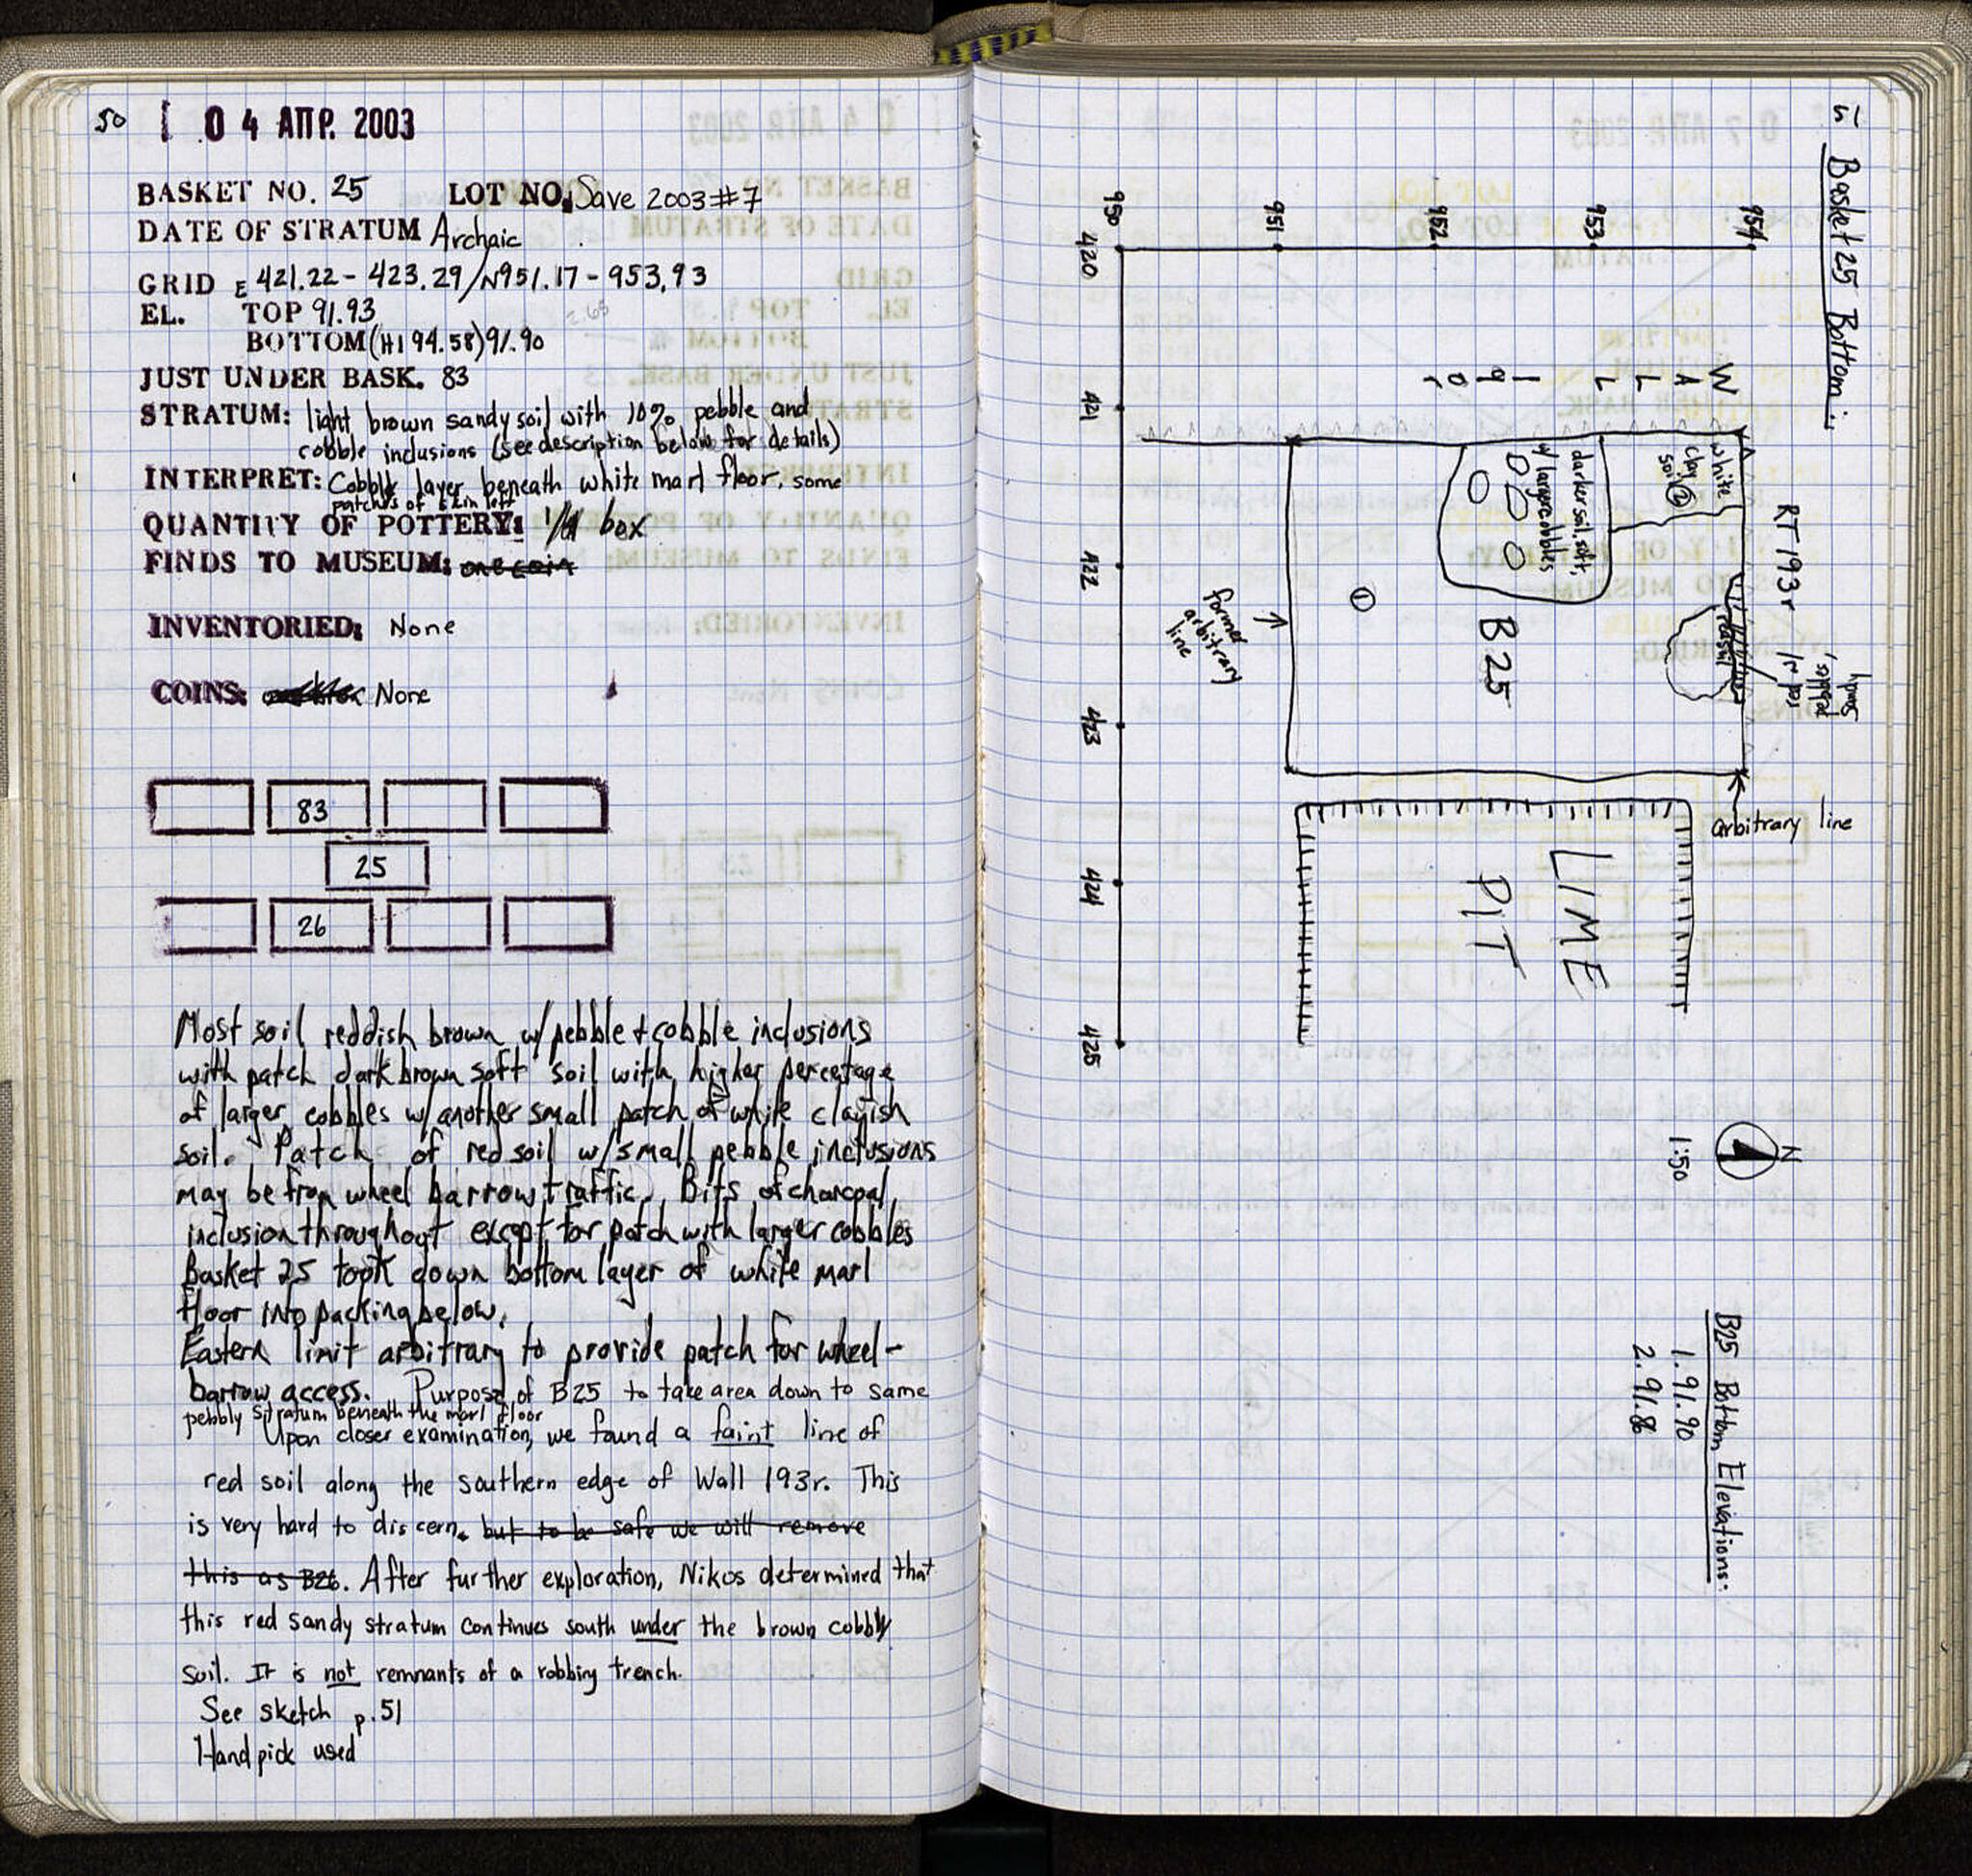 50 0 4 ΑΠΡ. 2003
BASKET NO. 25 LOT NO. Save 2003 #7
DATE OF STRATUM Archaic
GRID E 421.22 - 423.29/N951.17 - 953.93
EL. TOP 91.93 2.65
BOTTOM (HI 94.58) 91.90
JUST UNDER BASK. 83
STRATUM: light brown sandy soil with 10% pebble and
cobble inclusions (see description below for details)
INTERPRET: Cobbly layer beneath white marl floor, some
patches of skin left
QUANTITY OF POTTERY: box
FINDS TO MUSEUM: one coin
INVENTORIED: None
COINS: None
83
25
26
Most soil reddish brown w/ pebble + cobble inclusions
with patch dark brown soft soil with higher percetage
of larger cobbles w/ another small patch of white clayish
soil. Patch of red soil w/ small pebble inclusions
may be from wheel barrow traffic. Bits of charcoal
inclusion throughout except for patch with larger cobbles
Basket 25 took down bottom layer of white marl
floor into packing below.
Eastern limit arbitrary to provide patch for wheel-
barrow access. Purpose of B25 to take area down to same
pebbly stratum beneath the marl floor
Upon closer examination, we found a faint line of
red soil along the southern edge of Wall 193r. This
is very hard to discern. but to be safe we will remove
this as B26. After further exploration, Nikos determined that
this red sandy stratum continues south under the brown cobbly
soil. It is not remnants of a robbing trench.
See sketch p.51
Hand pick used
51 Basket 25 Bottom:
950 951 952 953 954
420
421
422
423
424
425
WALL
white
clay
soil ②
darker soil, soft,
w/ large cobbles
①
B 25
RT 193r
former
arbitrary
line
arbitrary line
LIME
PIT
N
1:50
B25 Bottom Elevations:
1. 91.90
2. 91.86